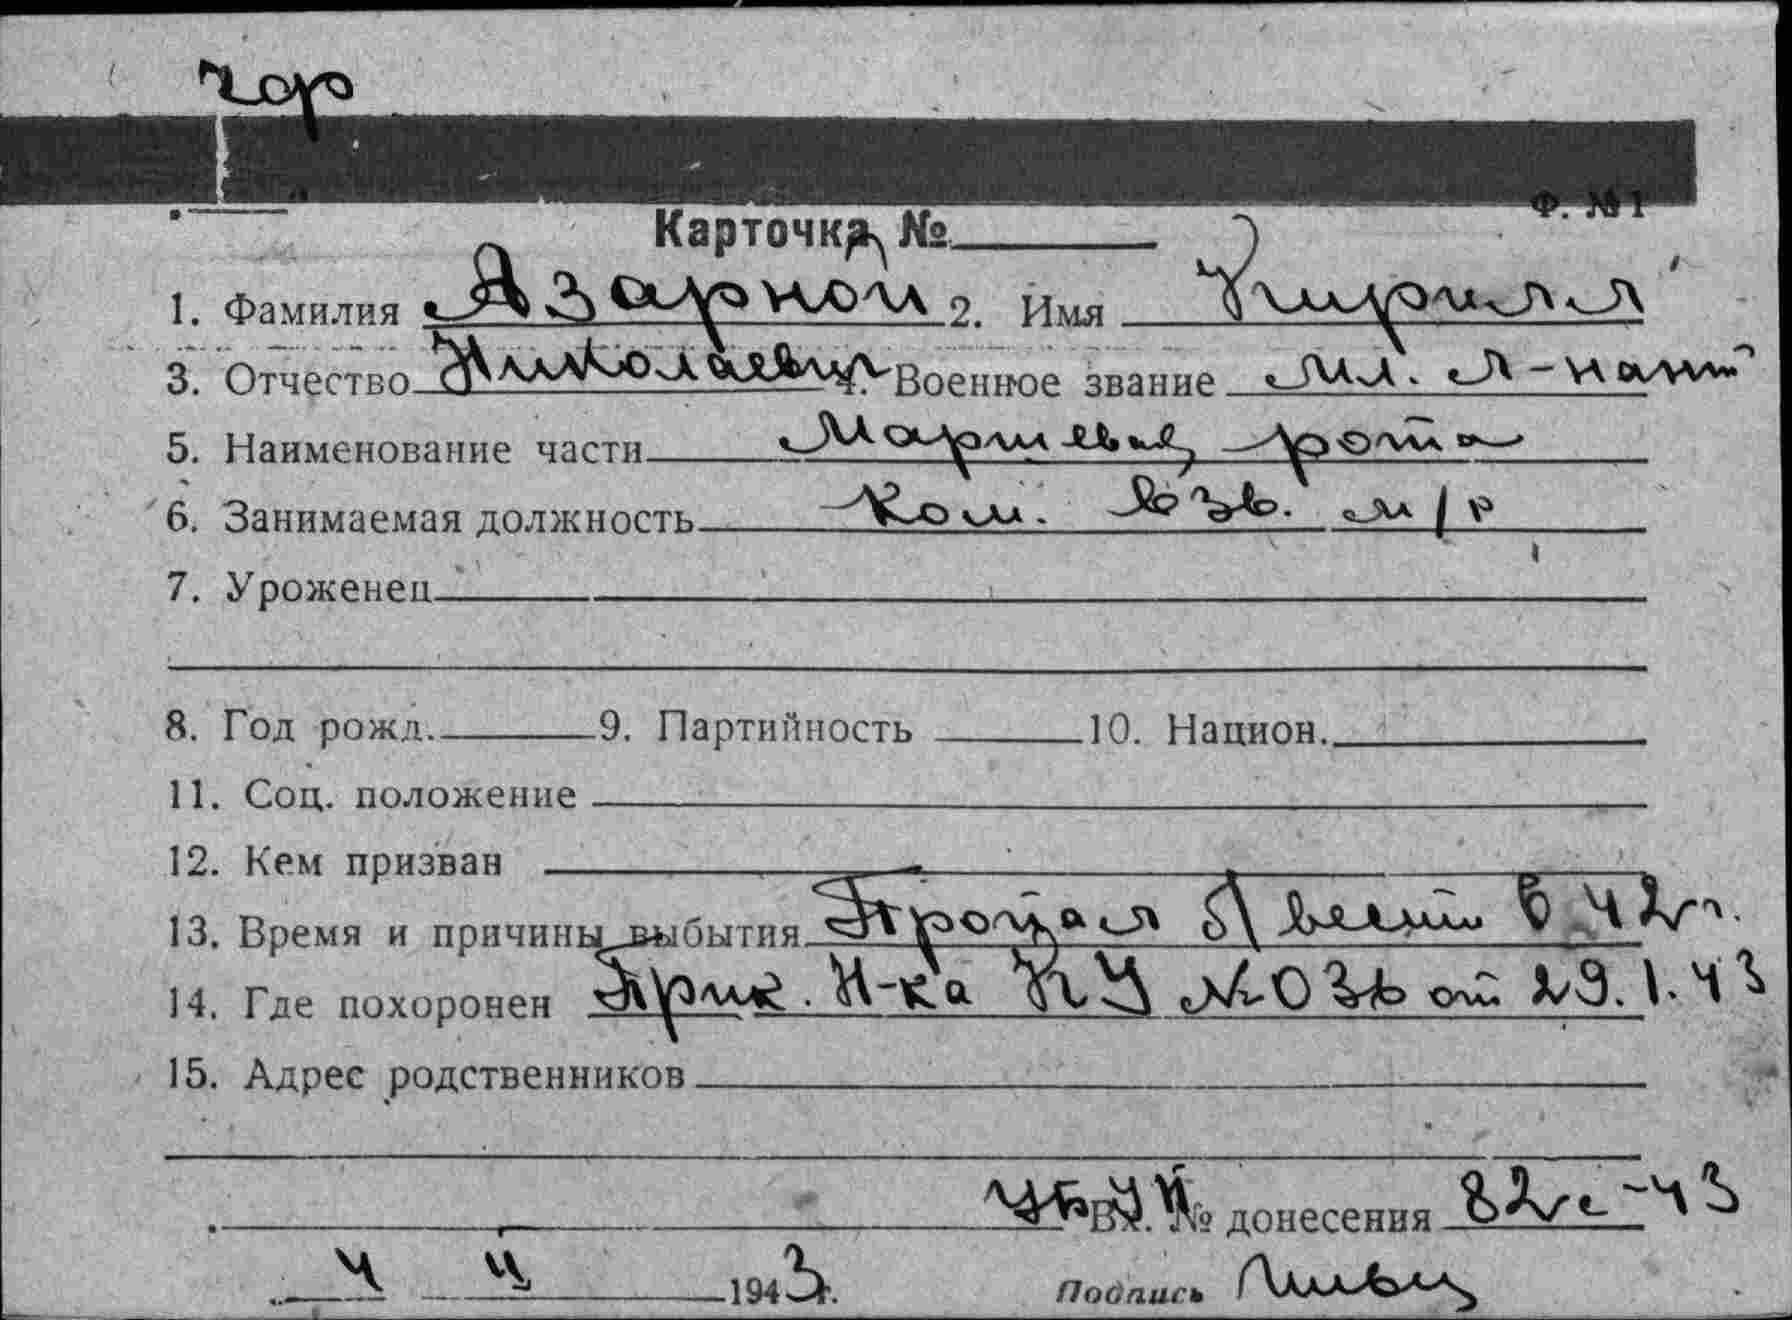 гор
Ф. № 1
Карточка №
1. Фамилия Азарной 2. Имя Кирилл
3. Отчество Николаевич 4. Военное звание мл. л-нант
5. Наименование части Маршевая рота
6. Занимаемая должность Ком. взв. м/р
7. Уроженец
8. Год рожд. 9. Партийность 10. Национ.
11. Соц. положение
12. Кем призван
13. Время и причины выбытия Пропал б/вести в 42 г.
14. Где похоронен Прик. Н-ка КУ № 036 от 29.1.43
15. Адрес родственников
Вх. № донесения 82 с-43
4 II 1943 г. Подпись